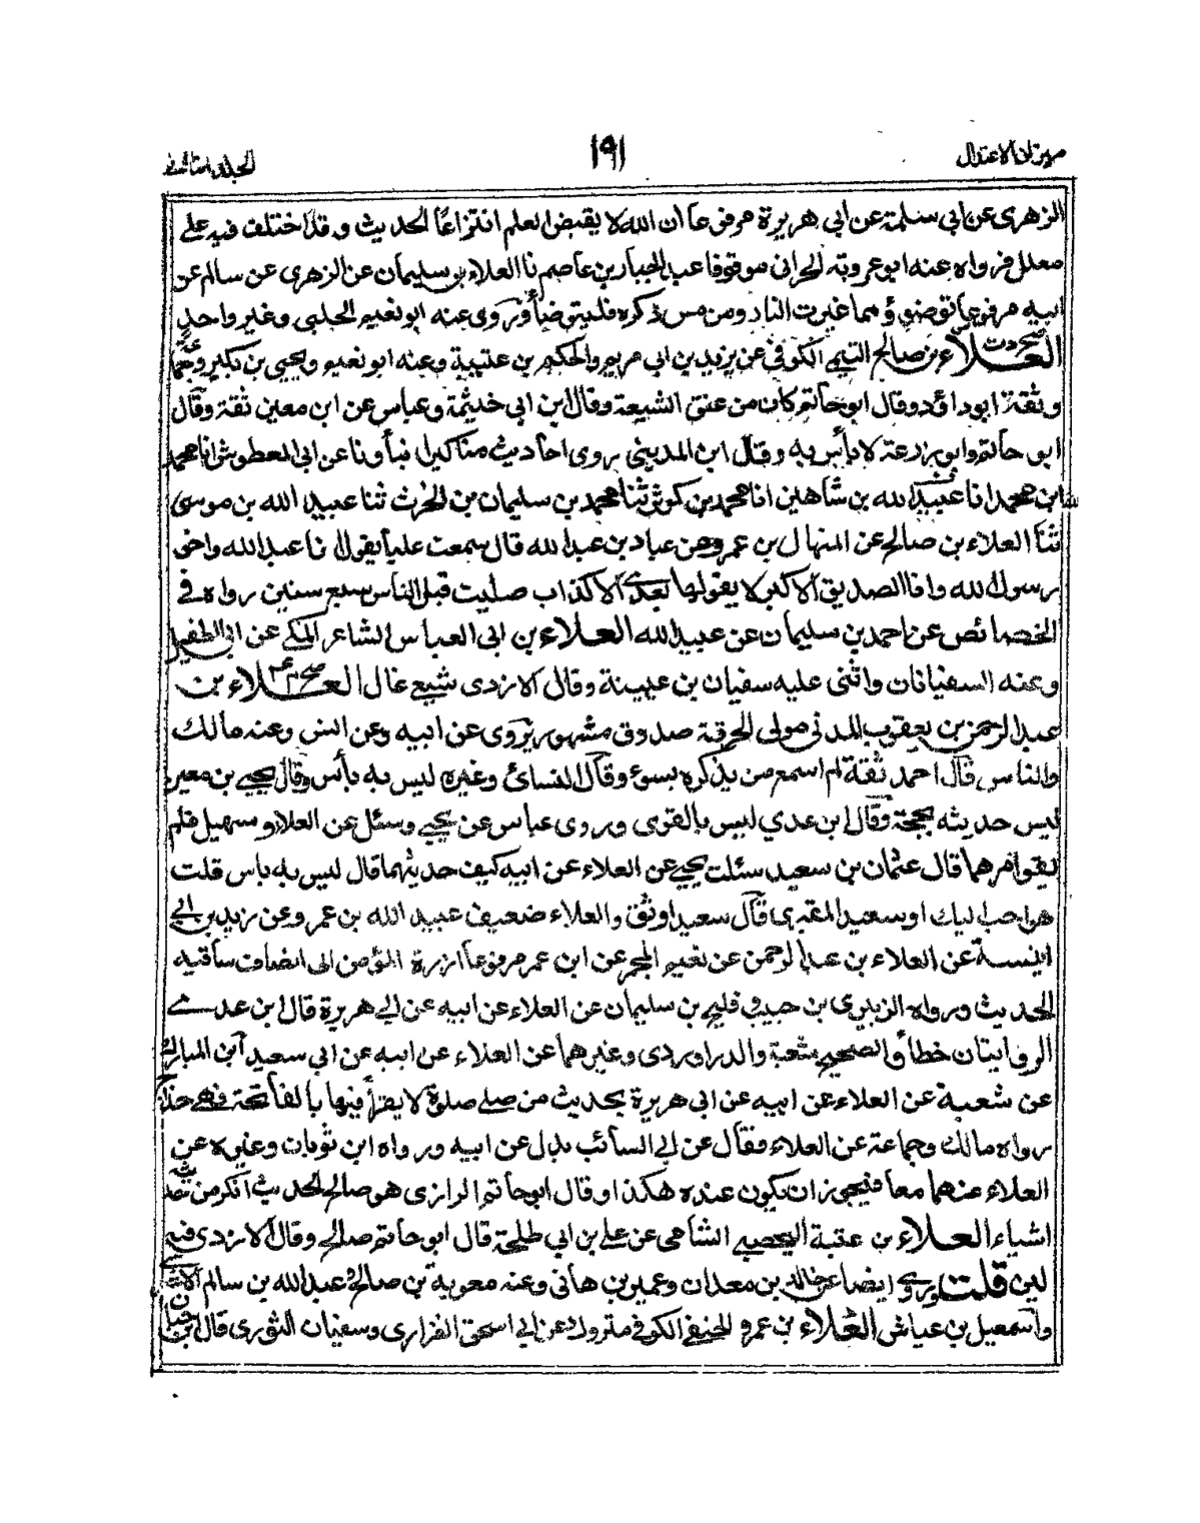 ميزان الاعتدال
١٩١
الجلد الثاني
الزهرى عن ابى سلمة عن ابى هريرة مرفوعا ان الله لا يقبض العلم انتزاعًا الحديث وقد اختلف فيه على
معلل فرواه عنه ابو عروبة الحرانى موقوفا عبد الجبار بن عاصم نا العلاء بن سليمان عن الزهرى عن سالم عن
ابيه مرفوعا توضؤا مما غيرت النار ومن مس ذكره فليتوضأ وروى عنه ابو نعيم الحلبى وغير واحد
العلاء بن صالح التيمى الكوفى عن يزيد بن ابى مريم والحكم بن عتيبة وعنه ابو نعيم ويحيى بن بكير وجماعة
وثقه ابو داؤد وقال ابو حاتم كان من عتق الشيعة وقال ابن ابى خيثمة وعباس عن ابن معين ثقة وقال
ابو حاتم وابو زرعة لا بأس به وقال ابن المدينى روى احاديث مناكير انبأونا عن ابى المعطوش انا محمد
ابن محمد انا عبيد الله بن شاهين انا محمد بن كوثر ثنا محمد بن سليمان بن الحرث ثنا عبيد الله بن موسى
ثنا العلاء بن صالح عن المنهال بن عمرو عن عباد بن عبد الله قال سمعت عليا يقول انا عبد الله واخو
رسول الله وانا الصديق الاكبر لا يقولها بعدى الا كذاب صليت قبل الناس سبع سنين رواه فى
الخصائص عن احمد بن سليمان عن عبيد الله العلاء بن ابى العباس الشاعر المكى عن ابى الطفيل
وعنه السفيانان واثنى عليه سفيان بن عيينة وقال الازدى شيعى غال العلاء بن
عبد الرحمن بن يعقوب المدنى مولى الحرقة صدوق مشهور يروى عن ابيه وعن انس وعنه مالك
والناس قال احمد ثقة لم اسمع من يذكره بسوء وقال النسائى وغيره ليس به بأس وقال يحيى بن معين
ليس حديثه بحجة وقال ابن عدي ليس بالقوى وروى عباس عن يحيى وسئل عن العلاء وسهيل فلم
يقو امرهما قال عثمان بن سعيد سئلت يحيى عن العلاء عن ابيه كيف حديثهما قال ليس به باس قلت
هو احب اليك او سعيد المقبرى قال سعيد اوثق والعلاء ضعيف عبيد الله بن عمرو عن زيد بن ابى
انيسة عن العلاء بن عبد الرحمن عن نعيم المجمر عن ابن عمر مرفوعا ازرة المؤمن الى انصاف ساقيه
الحديث ورواه الزبيرى بن حبيب و فليح بن سليمان عن العلاء عن ابيه عن ابى هريرة قال ابن عدى
الروايتان خطأ والصحيح شعبة والدراوردى وغيرهما عن العلاء عن ابيه عن ابى سعيد ابن المبارك
عن شعبة عن العلاء عن ابيه عن ابى هريرة بحديث من صلى صلوة لا يقرأ فيها بالفاتحة فهى خداج
رواه مالك وجماعة عن العلاء فقال عن ابى السائب بدل عن ابيه ورواه ابن ثوبان وغيره عن
العلاء عنهما معا فيجوز ان يكون عنده هكذا وقال ابو حاتم الرازى هو صالح الحديث انكر من حديثه
اشياء العلاء بن عقبة اليحصبى الشامى عن على بن ابى طلحة قال ابو حاتم صالح وقال الازدى فيه
لين قلت وروى ايضا عن خالد بن معدان وعمير بن هانى وعنه معوية بن صالح وعبد الله بن سالم
واسمعيل بن عياش العلاء بن عمرو الحنفى الكوفى متروك عن ابى اسحق الفزارى وسفيان الثورى قال ابن حبان